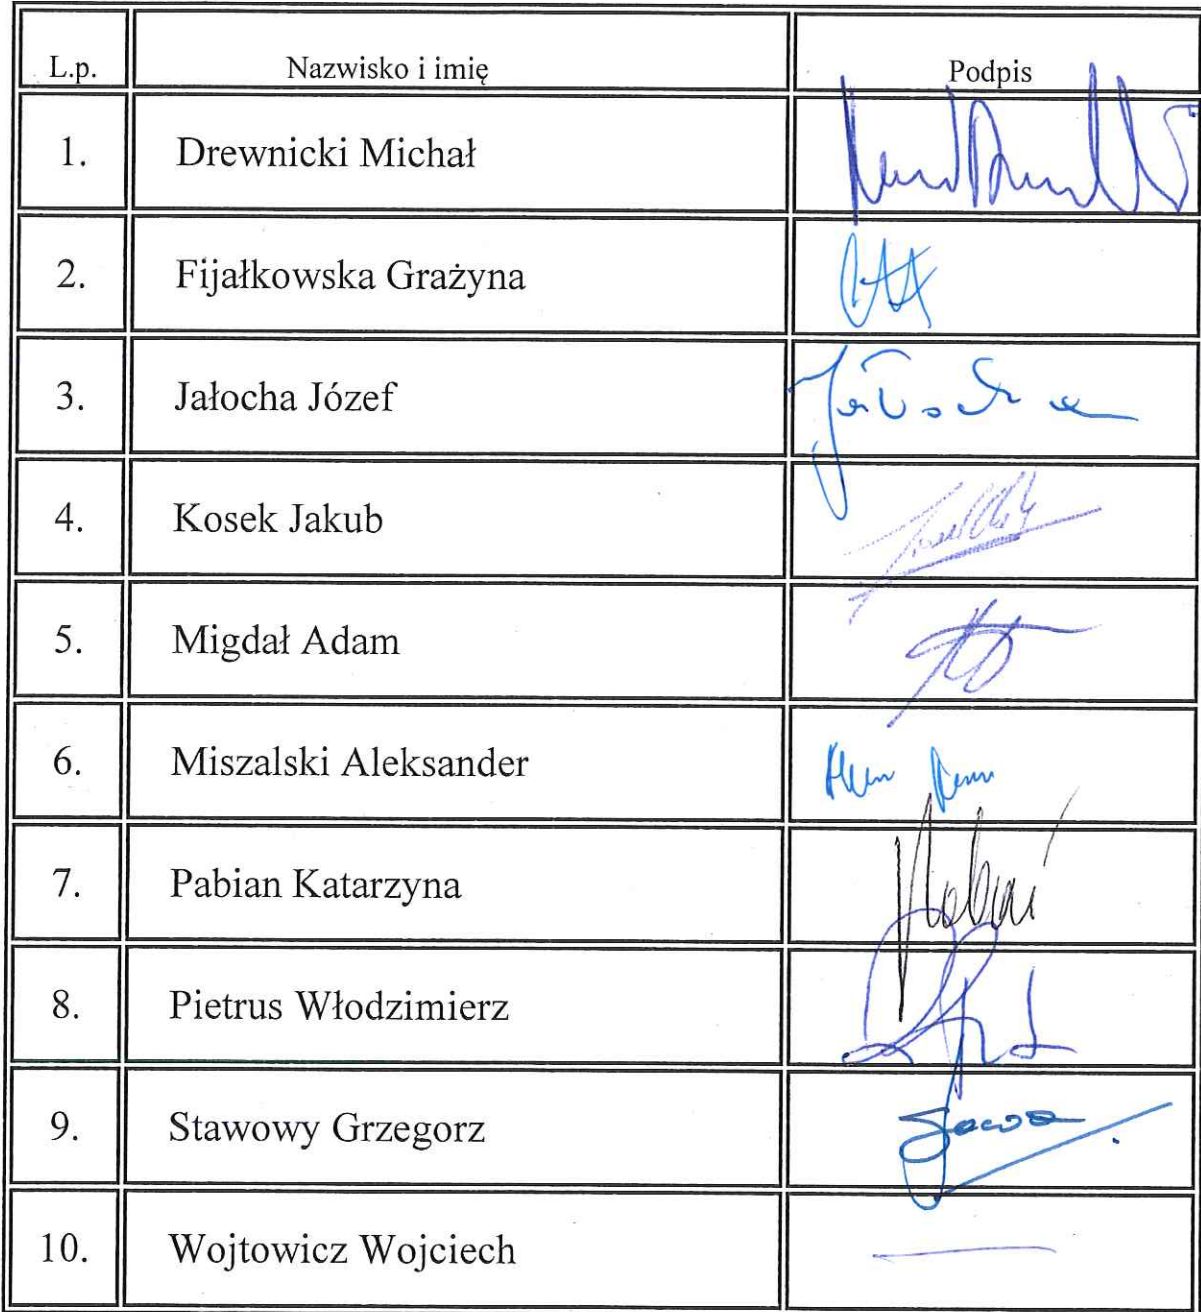 L.p. Nazwisko i imię Podpis
1. Drewnicki Michał
2. Fijałkowska Grażyna
3. Jałocha Józef Jałocha
4. Kosek Jakub
5. Migdał Adam
6. Miszalski Aleksander
7. Pabian Katarzyna
8. Pietrus Włodzimierz
9. Stawowy Grzegorz
10. Wojtowicz Wojciech